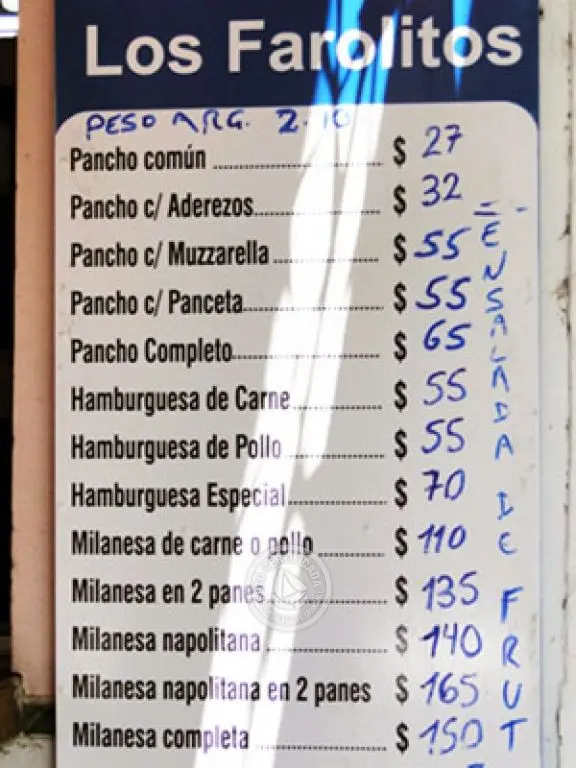 Los Farolitos
PESO ARG. 2.10
Pancho común $ 27
Pancho c/ Aderezos $ 32
Pancho c/ Muzzarella $ 55
Pancho c/ Panceta $ 55
Pancho Completo $ 65
Hamburguesa de Carne $ 55
Hamburguesa de Pollo $ 55
Hamburguesa Especial $ 70
Milanesa de carne o pollo $ 110
Milanesa en 2 panes $ 135
Milanesa napolitana $ 140
Milanesa napolitana en 2 panes $ 165
Milanesa completa $ 150
ENSALADA DE FRUT